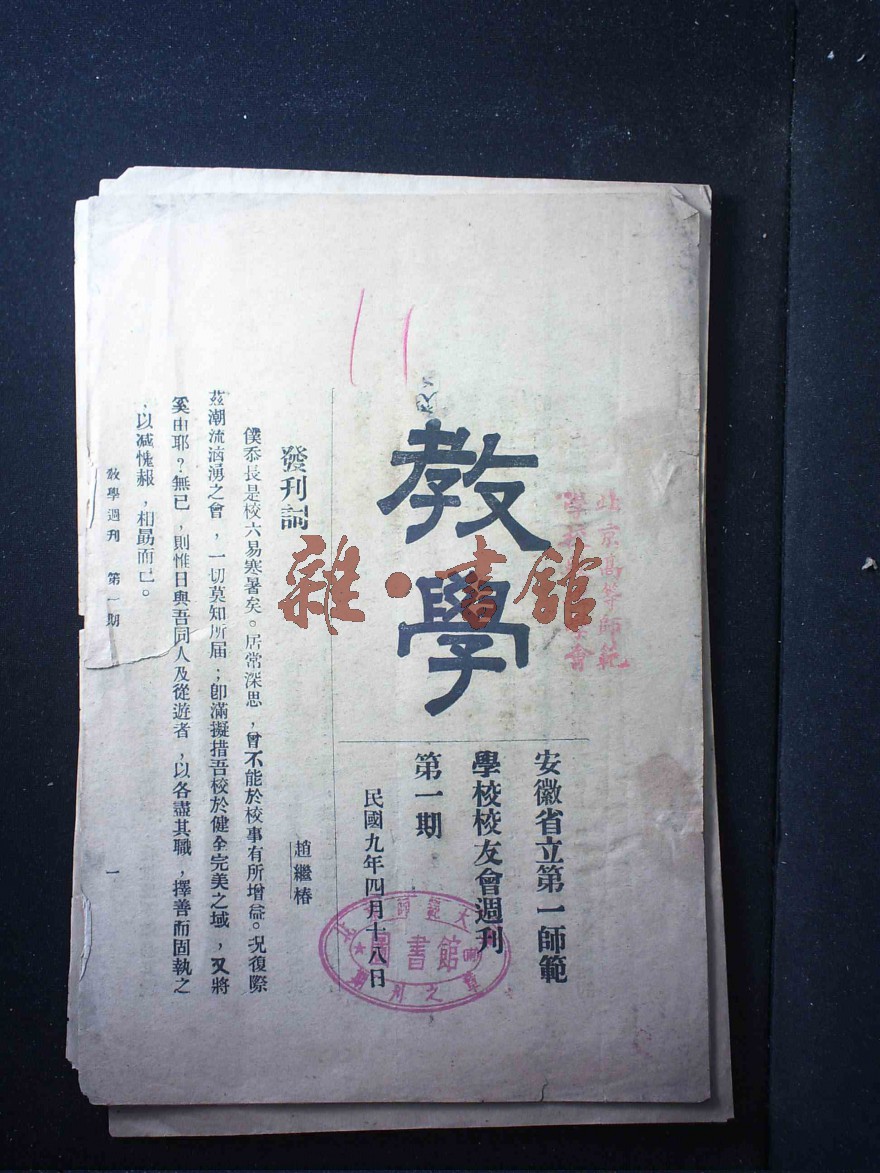 安徽省立第一師範
學校校友會週刊
第一期
民國九年四月十八日
教學
發刊詞
趙繼椿
僕忝長是校六易寒暑矣。居常深思，曾不能於校事有所增益。況復際
茲潮流洶湧之會，一切莫知所届；卽滿擬措吾校於健全完美之域，又將
奚由耶？無已，則惟日與吾同人及從遊者，以各盡其職，擇善而固執之
，以減愧赧，相勗而已。
教學週刊　第一期　一
北京高等師範
雜·書館
圖書館